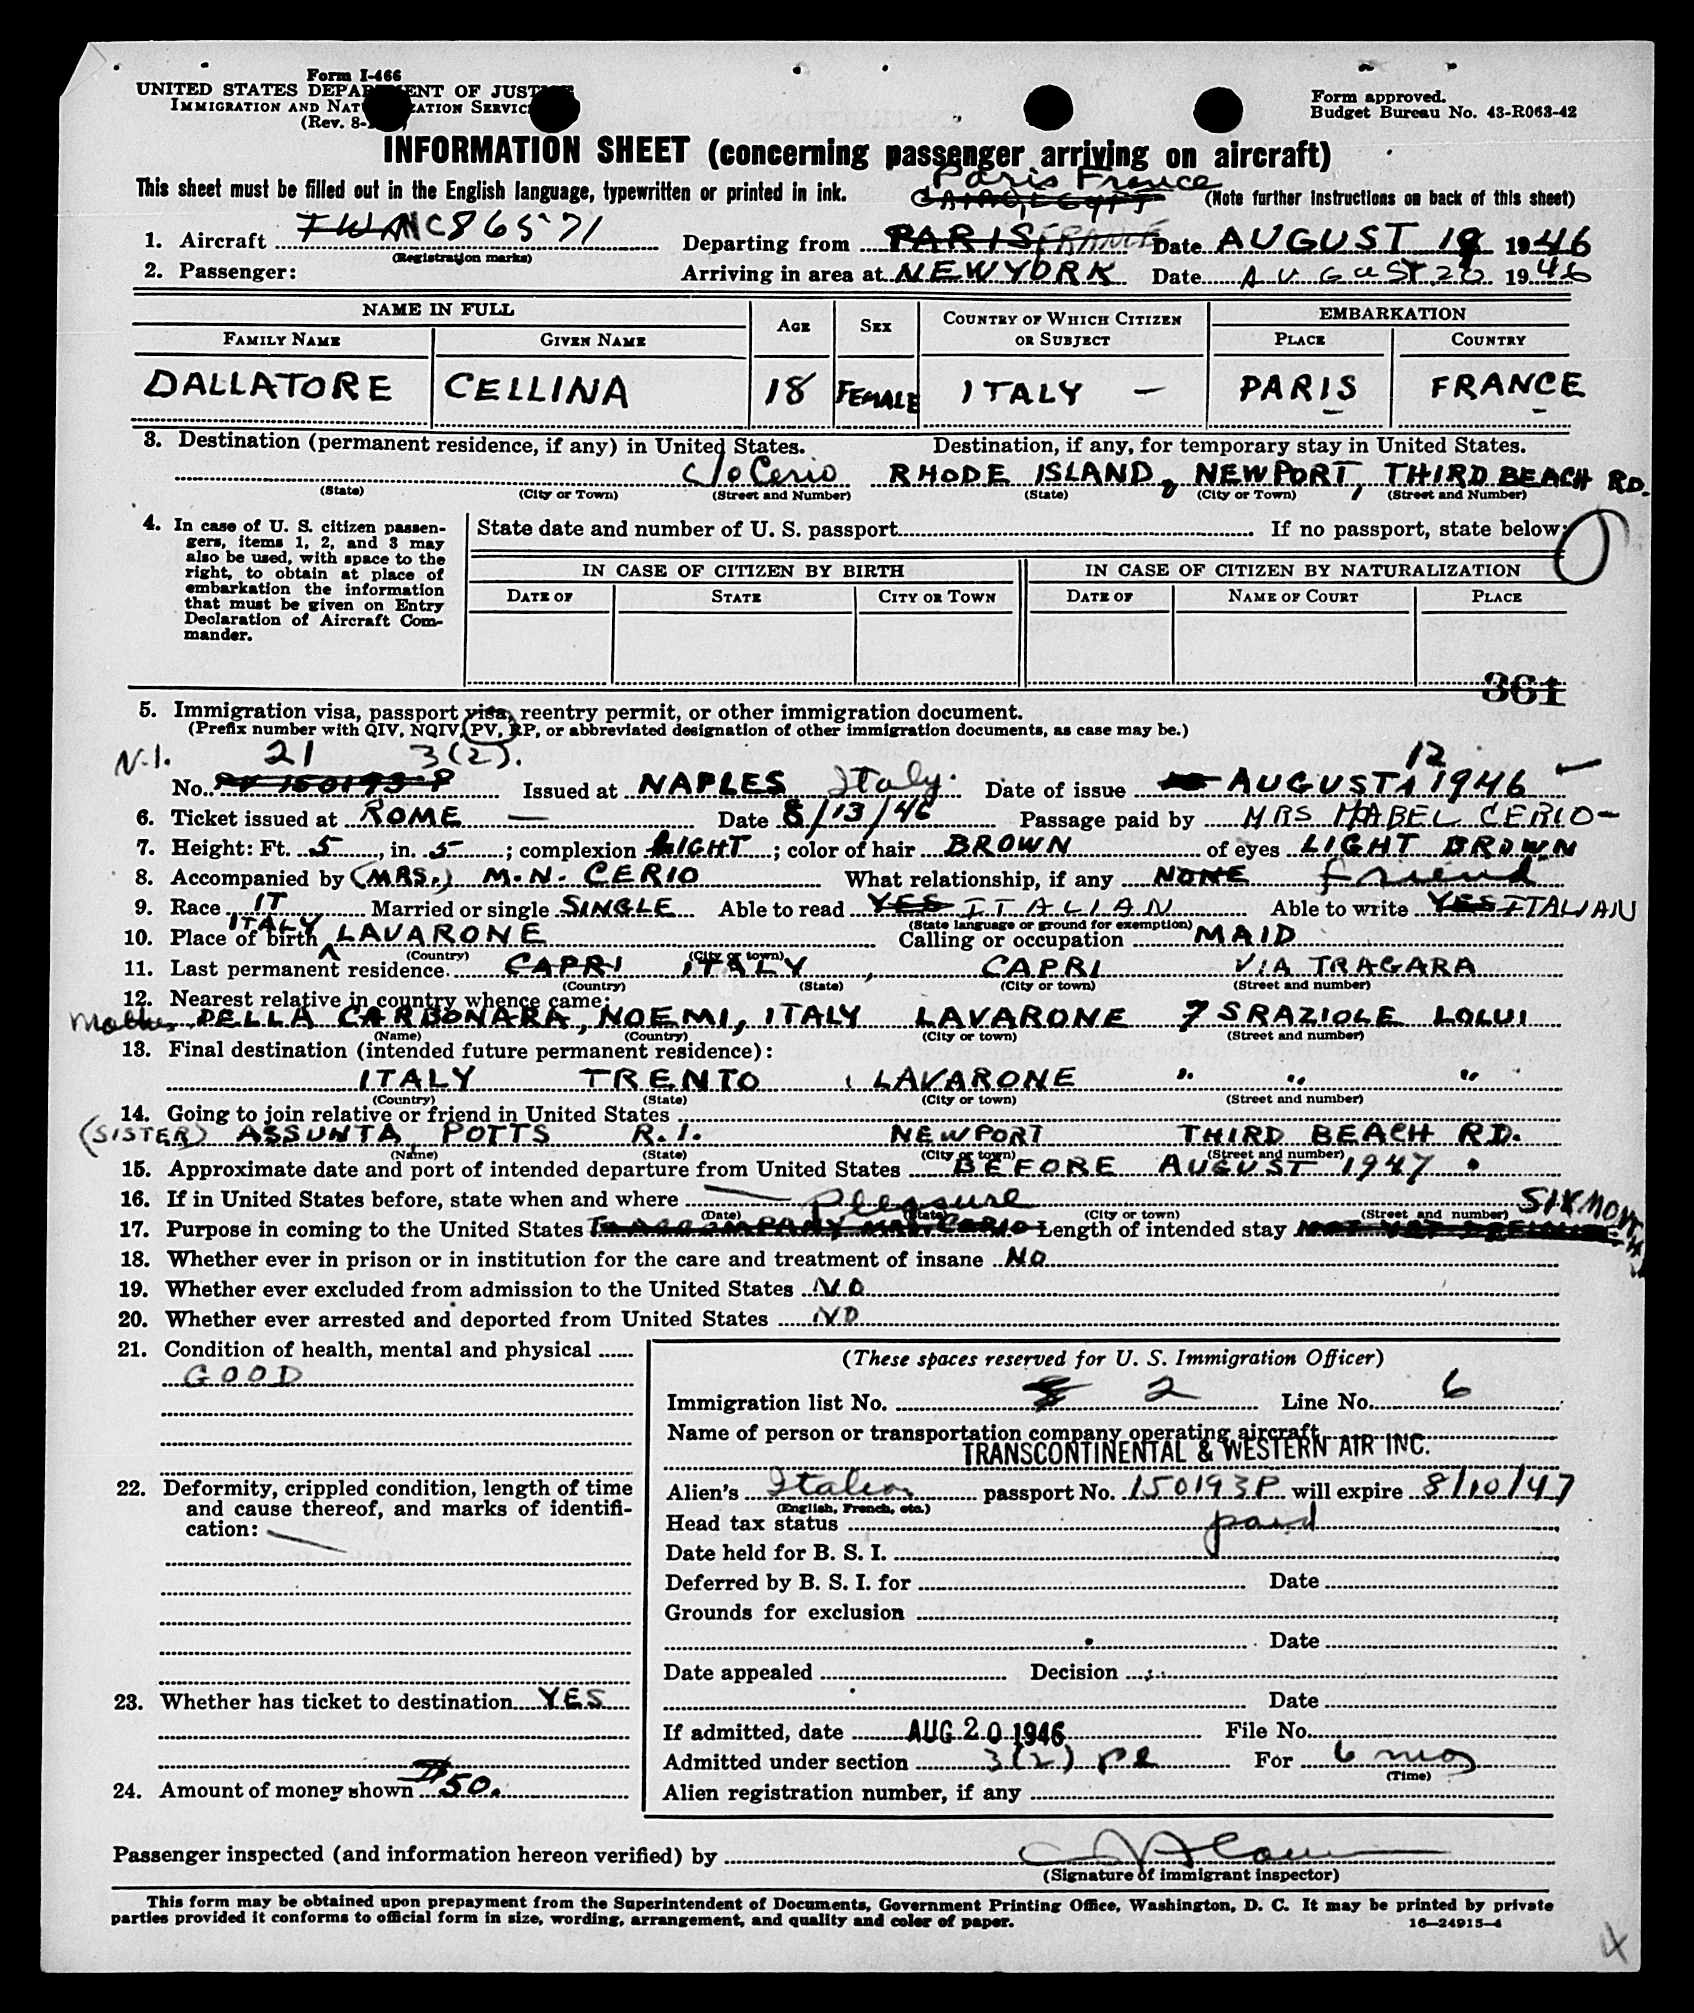 Form I-466
UNITED STATES DEPARTMENT OF JUSTICE
IMMIGRATION AND NATURALIZATION SERVICE
(Rev. 8-
Form approved.
Budget Bureau No. 43-R063-42
INFORMATION SHEET (concerning passenger arriving on aircraft)
This sheet must be filled out in the English language, typewritten or printed in ink.
Paris France
CAIRO, EGYPT
(Note further instructions on back of this sheet)
1. Aircraft TWA NC86571 Departing from PARIS, FRANCE Date AUGUST 19 1946
(Registration marks)
2. Passenger: Arriving in area at NEW YORK Date AUGUST 20 1946
NAME IN FULL AGE SEX COUNTRY OF WHICH CITIZEN OR SUBJECT EMBARKATION
FAMILY NAME GIVEN NAME PLACE COUNTRY
DALLATORE CELLINA 18 FEMALE ITALY — PARIS FRANCE
3. Destination (permanent residence, if any) in United States. Destination, if any, for temporary stay in United States.
c/o Cerio RHODE ISLAND, NEWPORT, THIRD BEACH RD.
(State) (City or Town) (Street and Number) (State) (City or Town) (Street and Number)
4. In case of U. S. citizen passengers, items 1, 2, and 3 may also be used, with space to the right, to obtain at place of embarkation the information that must be given on Entry Declaration of Aircraft Commander.
State date and number of U. S. passport If no passport, state below:
IN CASE OF CITIZEN BY BIRTH IN CASE OF CITIZEN BY NATURALIZATION
DATE OF STATE CITY OR TOWN DATE OF NAME OF COURT PLACE
361
5. Immigration visa, passport visa, reentry permit, or other immigration document.
(Prefix number with QIV, NQIV, PV, RP, or abbreviated designation of other immigration documents, as case may be.)
N.I. 21 3(2). 12
No. PV 150193-P Issued at NAPLES Italy. Date of issue AUGUST 1946
6. Ticket issued at ROME — Date 8/13/46 Passage paid by MRS MABEL CERIO-
7. Height: Ft. 5, in. 5; complexion LIGHT; color of hair BROWN of eyes LIGHT BROWN
8. Accompanied by (MRS.) M.N. CERIO What relationship, if any NONE friend
9. Race IT Married or single SINGLE Able to read YES ITALIAN Able to write YES ITALIAN
(State language or ground for exemption)
10. Place of birth ITALY LAVARONE Calling or occupation MAID
(Country) (City or town)
11. Last permanent residence CAPRI ITALY, CAPRI VIA TRAGARA
(Country) (State) (City or town) (Street and number)
12. Nearest relative in country whence came:
Mother DELLA CARBONARA, NOEMI, ITALY LAVARONE 7 SRAZIOLE LOLUI
(Name) (Country) (City or town) (Street and number)
13. Final destination (intended future permanent residence):
ITALY TRENTO LAVARONE " " "
(Country) (State) (City or town) (Street and number)
14. Going to join relative or friend in United States
(SISTER) ASSUNTA POTTS R.I. NEWPORT THIRD BEACH RD.
(Name) (State) (City or town) (Street and number)
15. Approximate date and port of intended departure from United States BEFORE AUGUST 1947.
16. If in United States before, state when and where
(Date) (State) (City or town) (Street and number)
Pleasure SIX MONTHS
17. Purpose in coming to the United States TO ACCOMPANY MRS CERIO Length of intended stay
18. Whether ever in prison or in institution for the care and treatment of insane NO
19. Whether ever excluded from admission to the United States NO
20. Whether ever arrested and deported from United States NO
21. Condition of health, mental and physical
GOOD
22. Deformity, crippled condition, length of time and cause thereof, and marks of identification: —
23. Whether has ticket to destination YES
24. Amount of money shown $50.
(These spaces reserved for U. S. Immigration Officer)
Immigration list No. 2 Line No. 6
Name of person or transportation company operating aircraft
TRANSCONTINENTAL & WESTERN AIR INC.
Alien's Italian passport No. 150193P will expire 8/10/47
(English, French, etc.)
Head tax status paid
Date held for B. S. I.
Deferred by B. S. I. for Date
Grounds for exclusion
Date
Date appealed Decision
Date
If admitted, date AUG 20 1946 File No.
Admitted under section 3(2) pl For 6 mos
(Time)
Alien registration number, if any
Passenger inspected (and information hereon verified) by
(Signature of immigrant inspector)
This form may be obtained upon prepayment from the Superintendent of Documents, Government Printing Office, Washington, D. C. It may be printed by private
parties provided it conforms to official form in size, wording, arrangement, and quality and color of paper.
16—24915-4
4